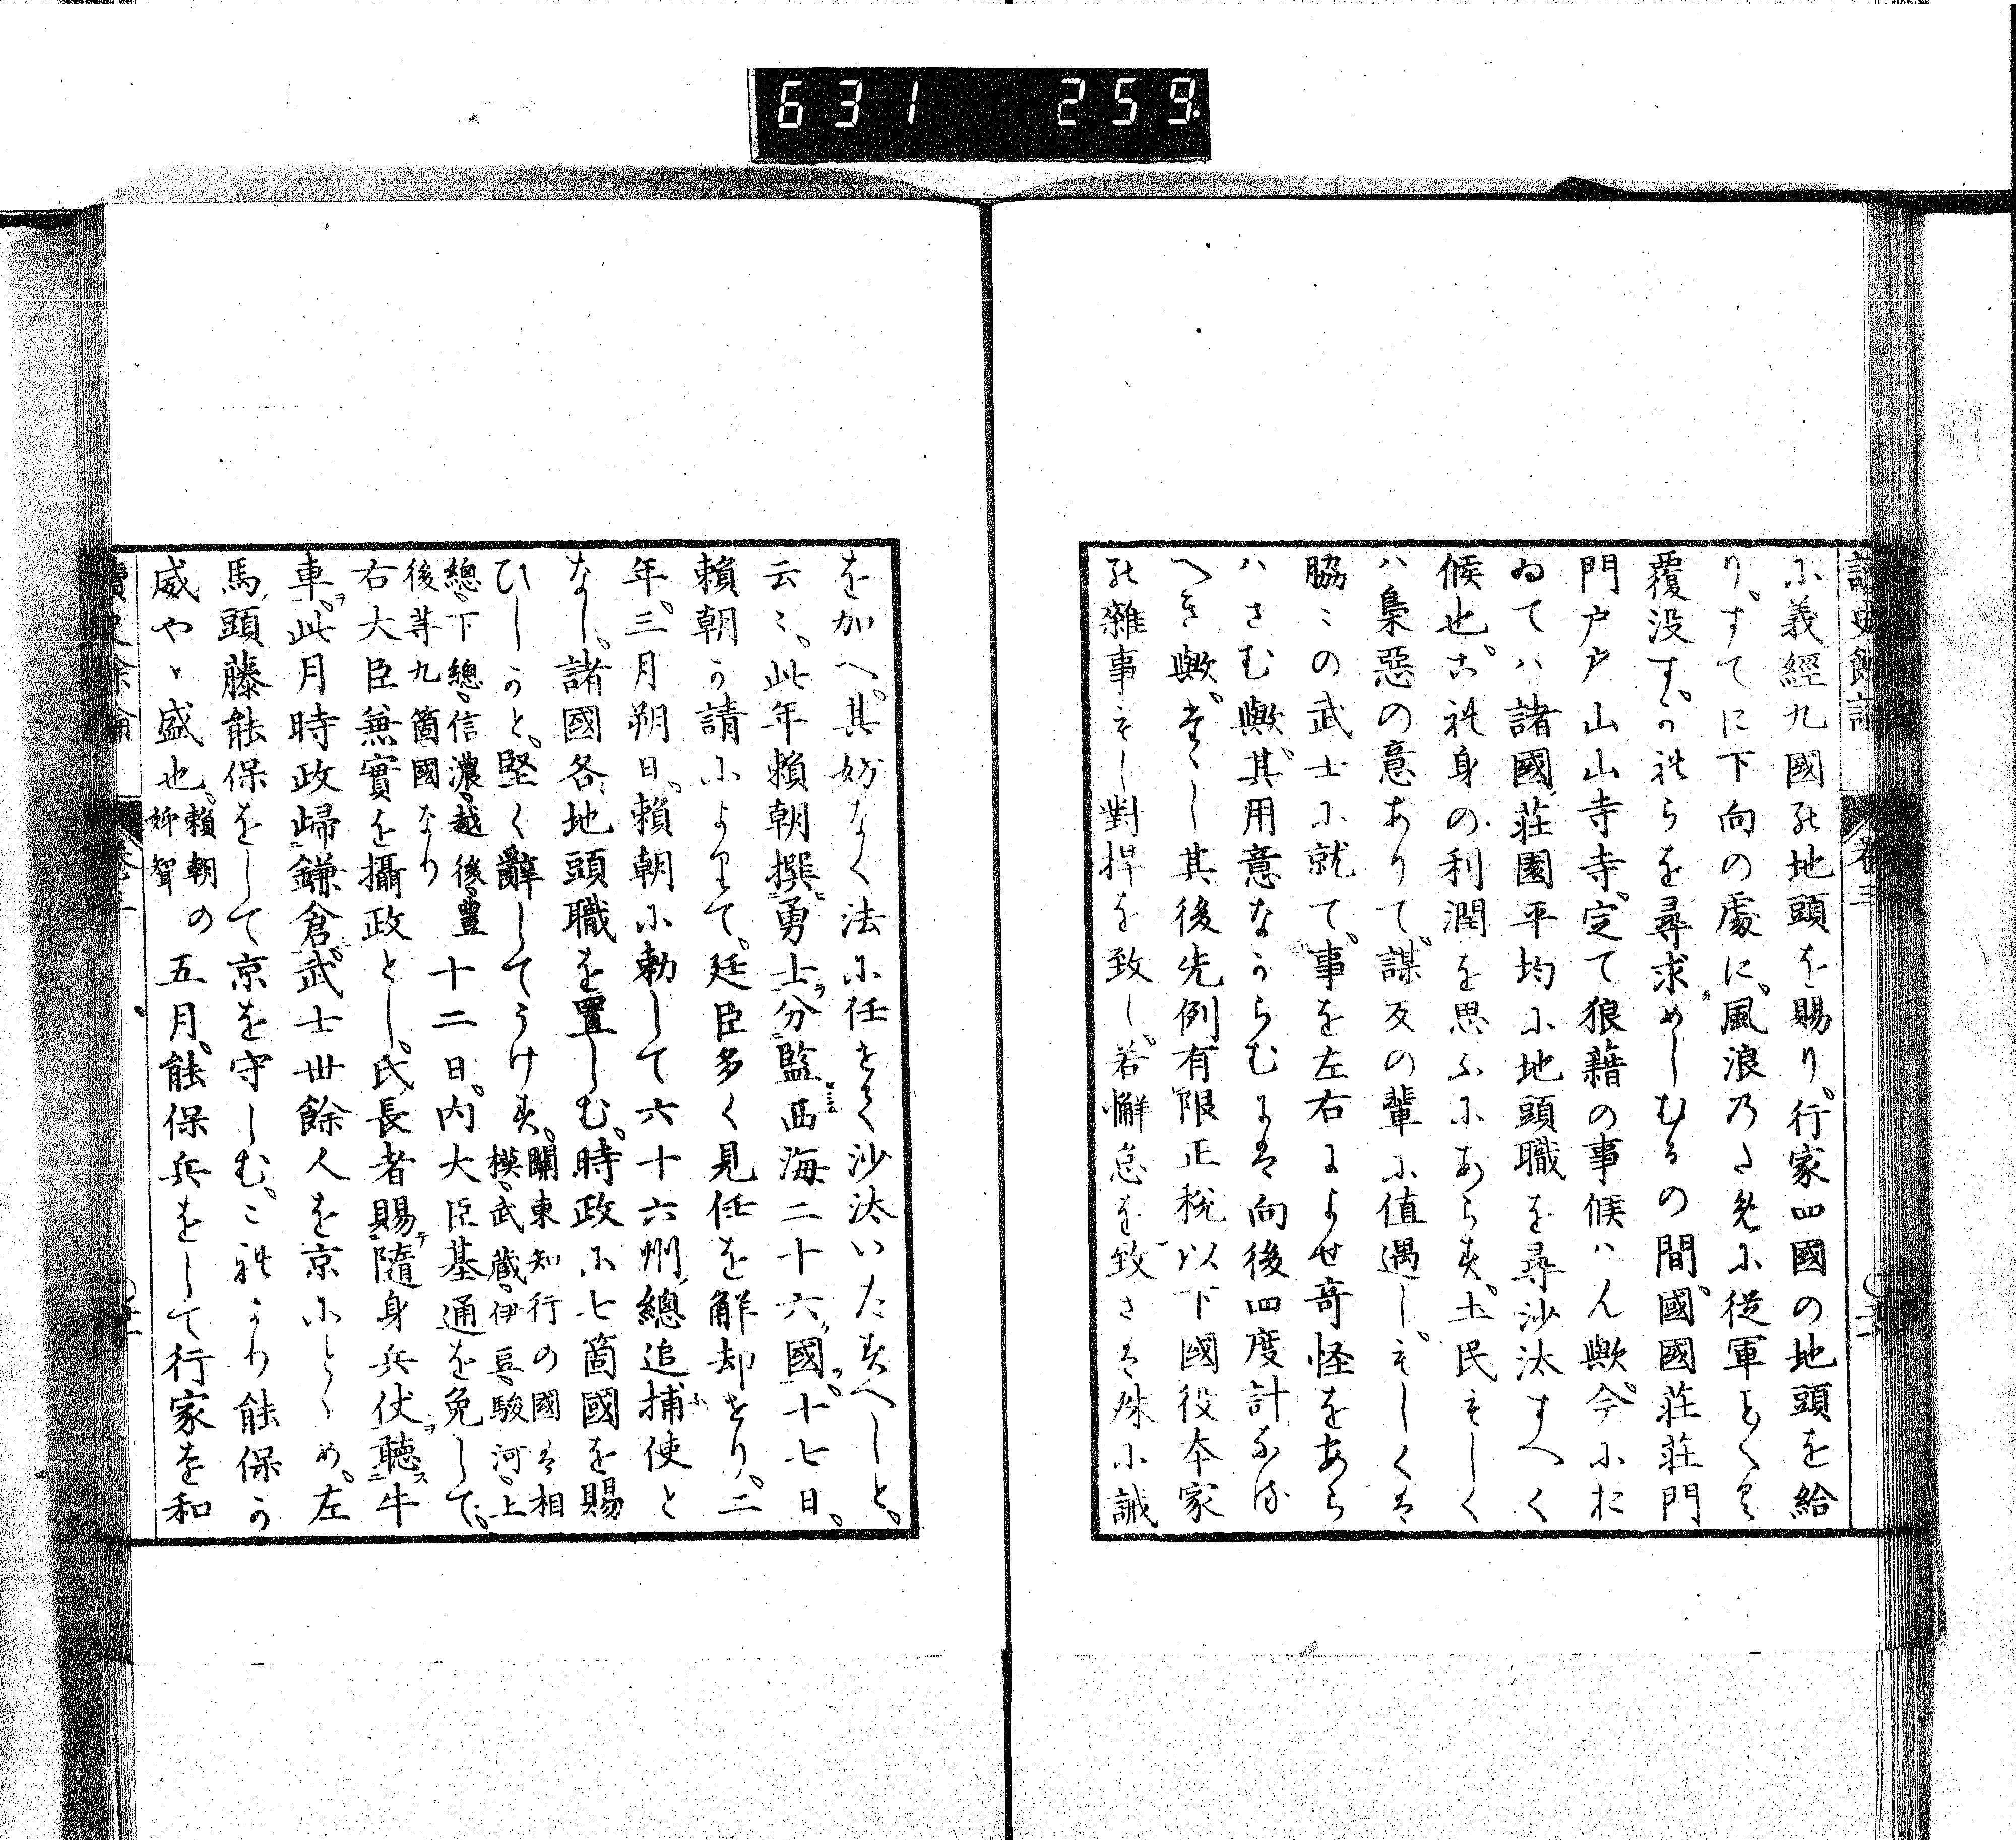 631 259
讀史餘論 卷三
に義經九國の地頭を賜り。行家四國の地頭を給
り。すてに下向の處に。風浪のために從軍ことく
覆没す。かれらを尋求めしむるの間。國國莊莊門
門戸戸山山寺寺。定て狼藉の事候ハん歟。今にお
ゐてハ諸國莊園平均に地頭職を尋沙汰すへく
候也。これ身の利潤を思ふにあらす。土民もしく
ハ梟惡の意ありて。謀反の輩に値遇し。もしくは
脇〻の武士に就て。事を左右によせ奇怪をあら
ハさむ歟。其用意なからむには向後四度計なる
へき歟。たゝし其後先例有限正税以下國役本家
の雜事もし對捍を致し。若懈怠を致さは殊に誡
を加へ。其妨なく法に任せて沙汰いたすへしと。
云〻。此年頼朝撰勇士分監西海二十六國。十七日。
頼朝か請によりて。廷臣多く見任を解却せり。二
年。三月朔日。頼朝に勅して六十六州總追捕使と
なし。諸國各地頭職を置しむ。時政に七箇國を賜
ひしかと。堅く辭してうけす。關東知行の國は相
模。武藏。伊豆。駿河。上
總。下總。信濃。越後。豊
後等九箇國なり 十二日。内大臣基通を免して。
右大臣兼實を攝政とし。氏長者賜隨身兵仗聽牛
車。此月時政歸鎌倉。武士丗餘人を京にとゝめ。左
馬頭藤能保をして京を守しむ。これより能保か
威やゝ盛也。頼朝の
姉聟 五月。能保兵をして行家を和
讀史餘論 卷三